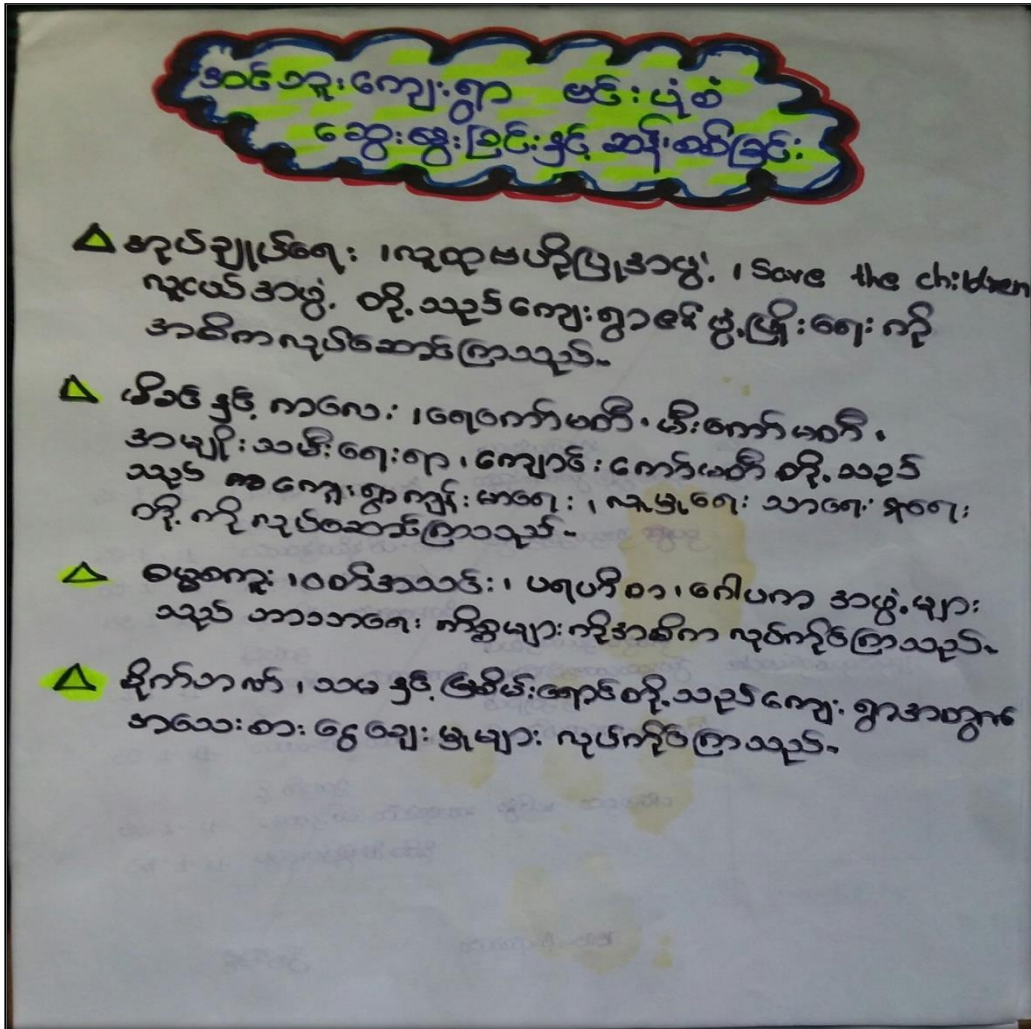 အင်ဘူးကျေးရွာ ဗင်းပုံစံ
ဆွေးနွေးခြင်းနှင့် ဆန်းစစ်ခြင်း
△ အုပ်ချုပ်ရေး ၊လူထုဗဟိုပြုအဖွဲ့ ၊ Save the children
လူငယ်အဖွဲ့ တို့သည် ကျေးရွာဇုန် ဖွံ့ဖြိုးရေး ကို
အဓိကလုပ်ဆောင်ကြသည်။
△ မိခင် နှင့် ကလေး ၊ရေကော်မတီ ၊ မီးကော်မတီ ၊
အမျိုးသမီးရေးရာ ၊ကျောင်းကော်မတီ တို့သည်
ကျေးရွာကျန်းမာရေး ၊ လူမှုရေး သာရေး နာရေး
တို့ ကို လုပ်ဆောင်ကြသည်။
△ ဓမ္မစကူး ၊ဝတ်အသင်း ၊ ပရဟိတ ၊ဂေါပက အဖွဲ့များ
သည် ဘာသာရေး ကိစ္စများ ကိုအဓိက လုပ်ကိုင်ကြသည်။
△ စိုက်ဘဏ် ၊သမ နှင့် မြစိမ်းရောင်တို့သည် ကျေးရွာအတွက်
အသေးစား ငွေချေးမှုများ လုပ်ကိုင်ကြသည်။